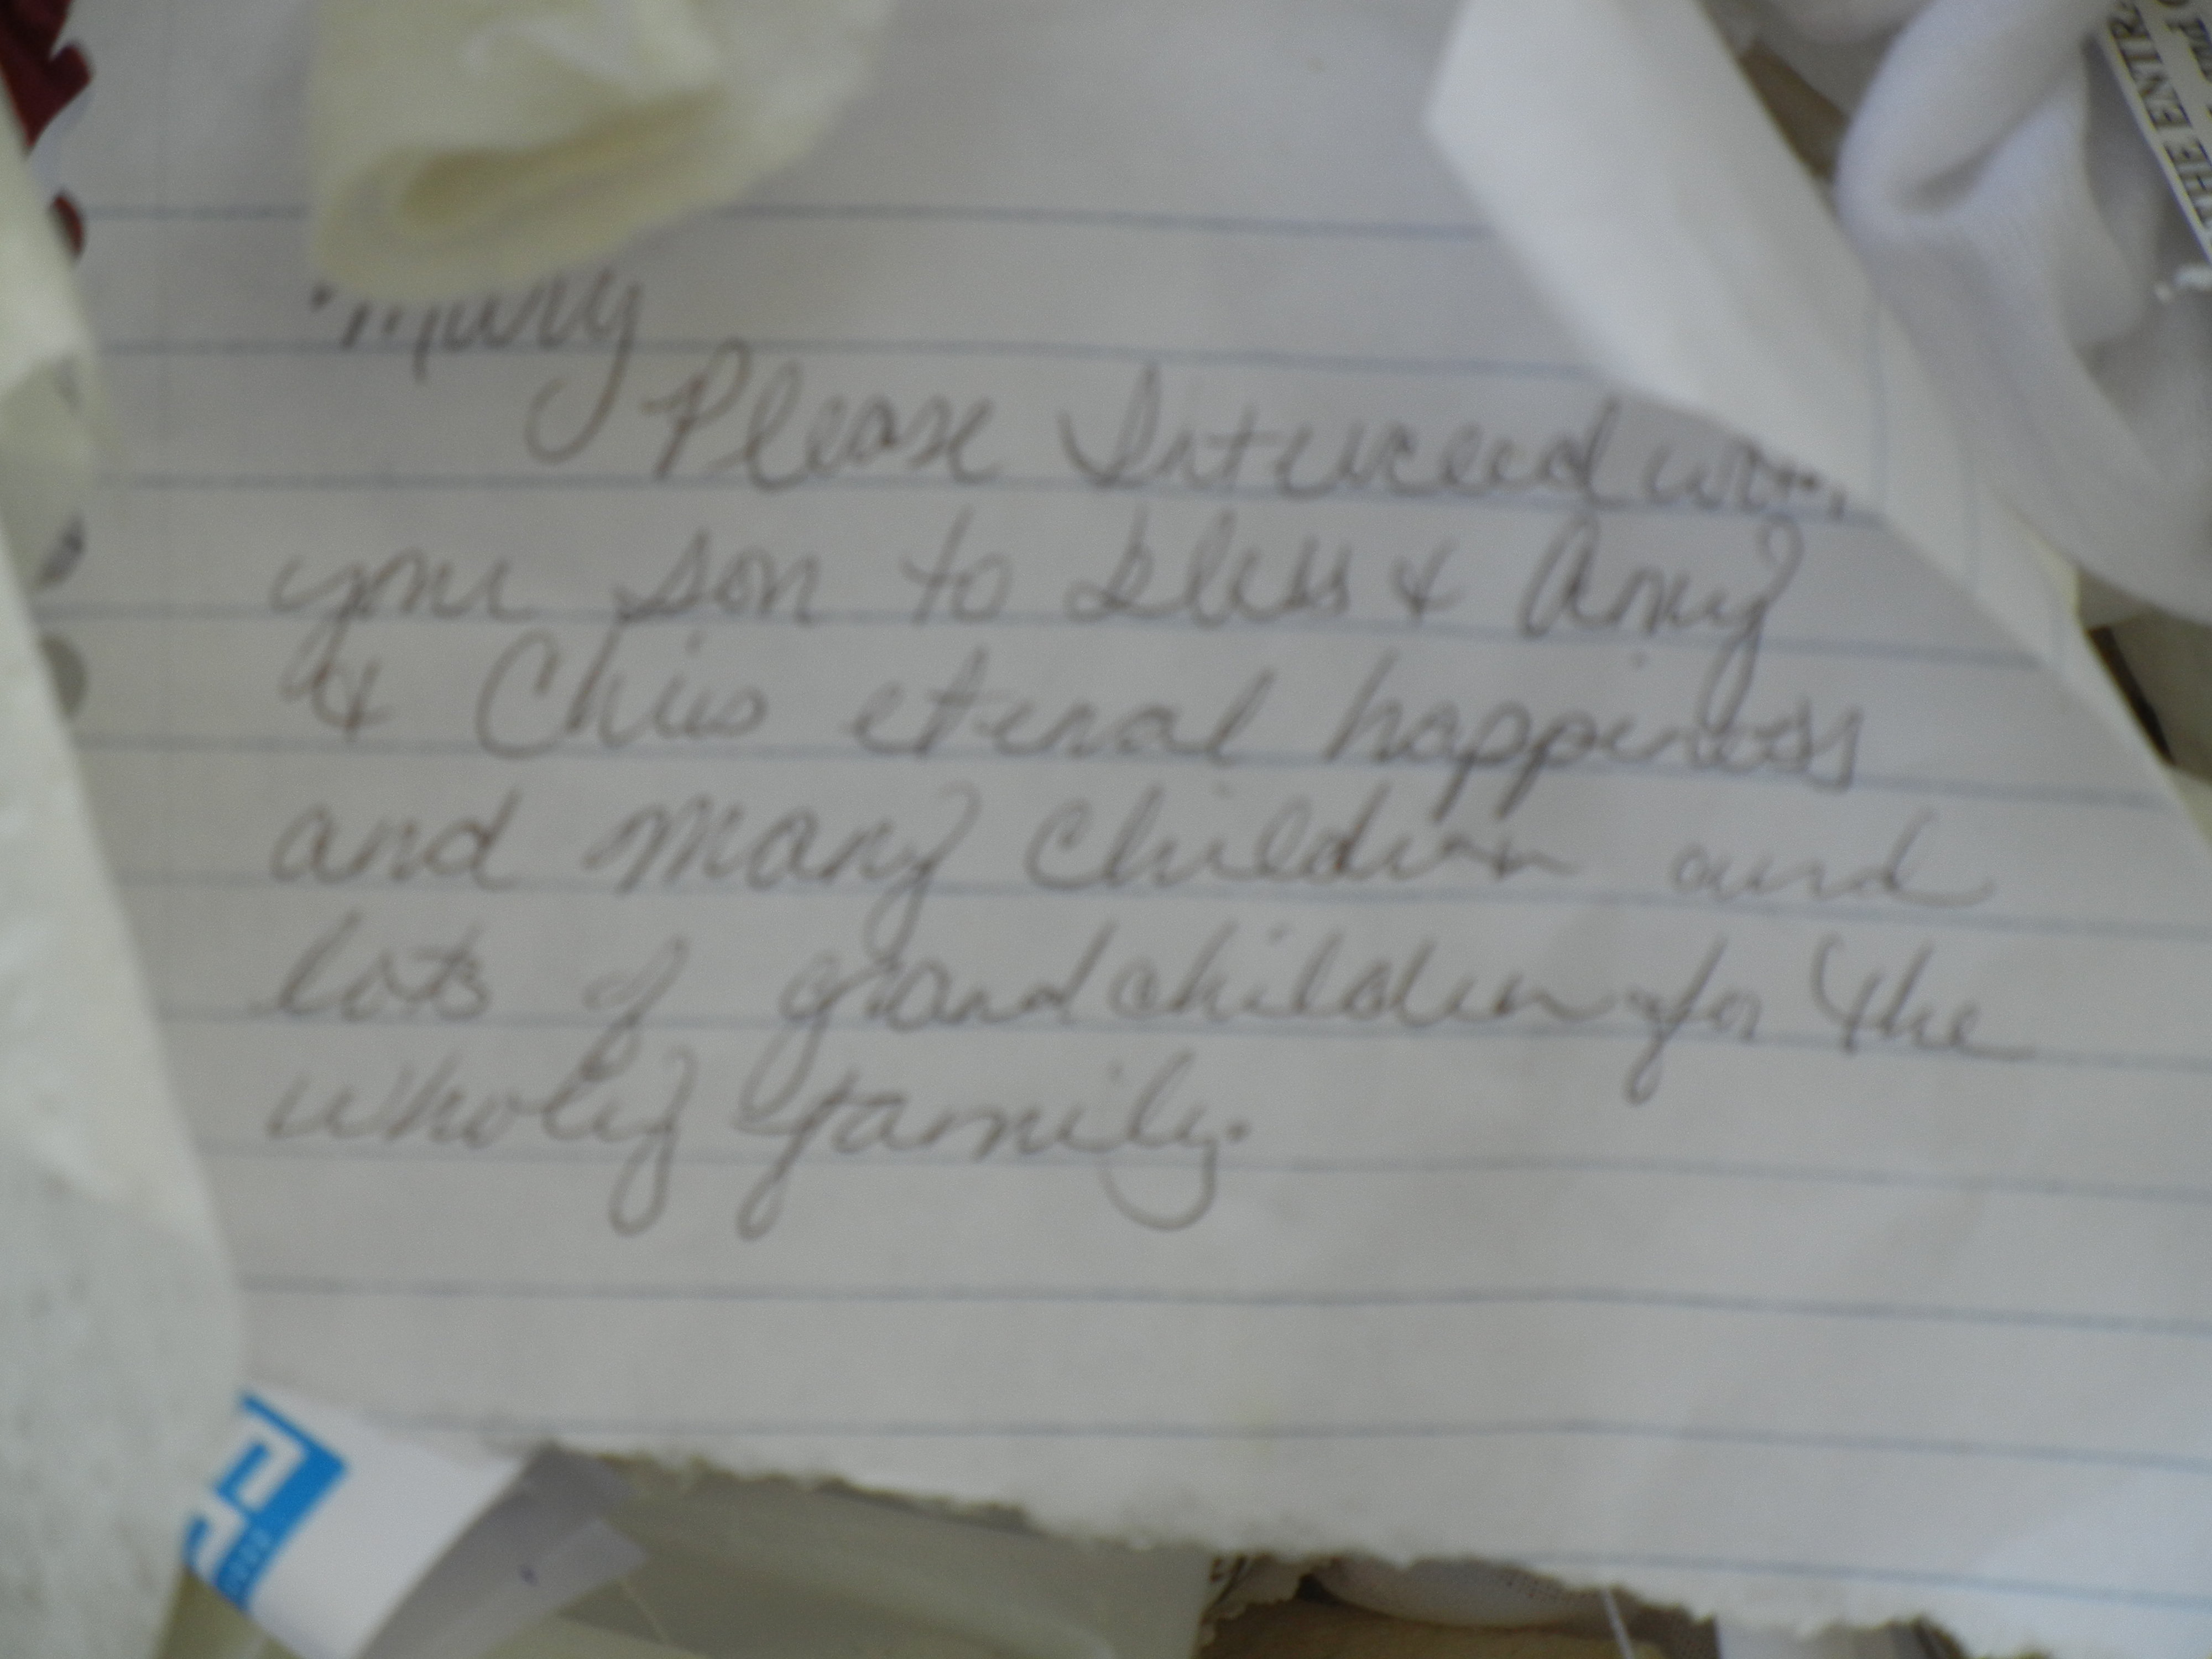 Mary
Please Interceed with
your son to bless & Amy
& Chris eternal happiness
and many children and
lots of grandchildren for the
wholey family.
THE ENTR